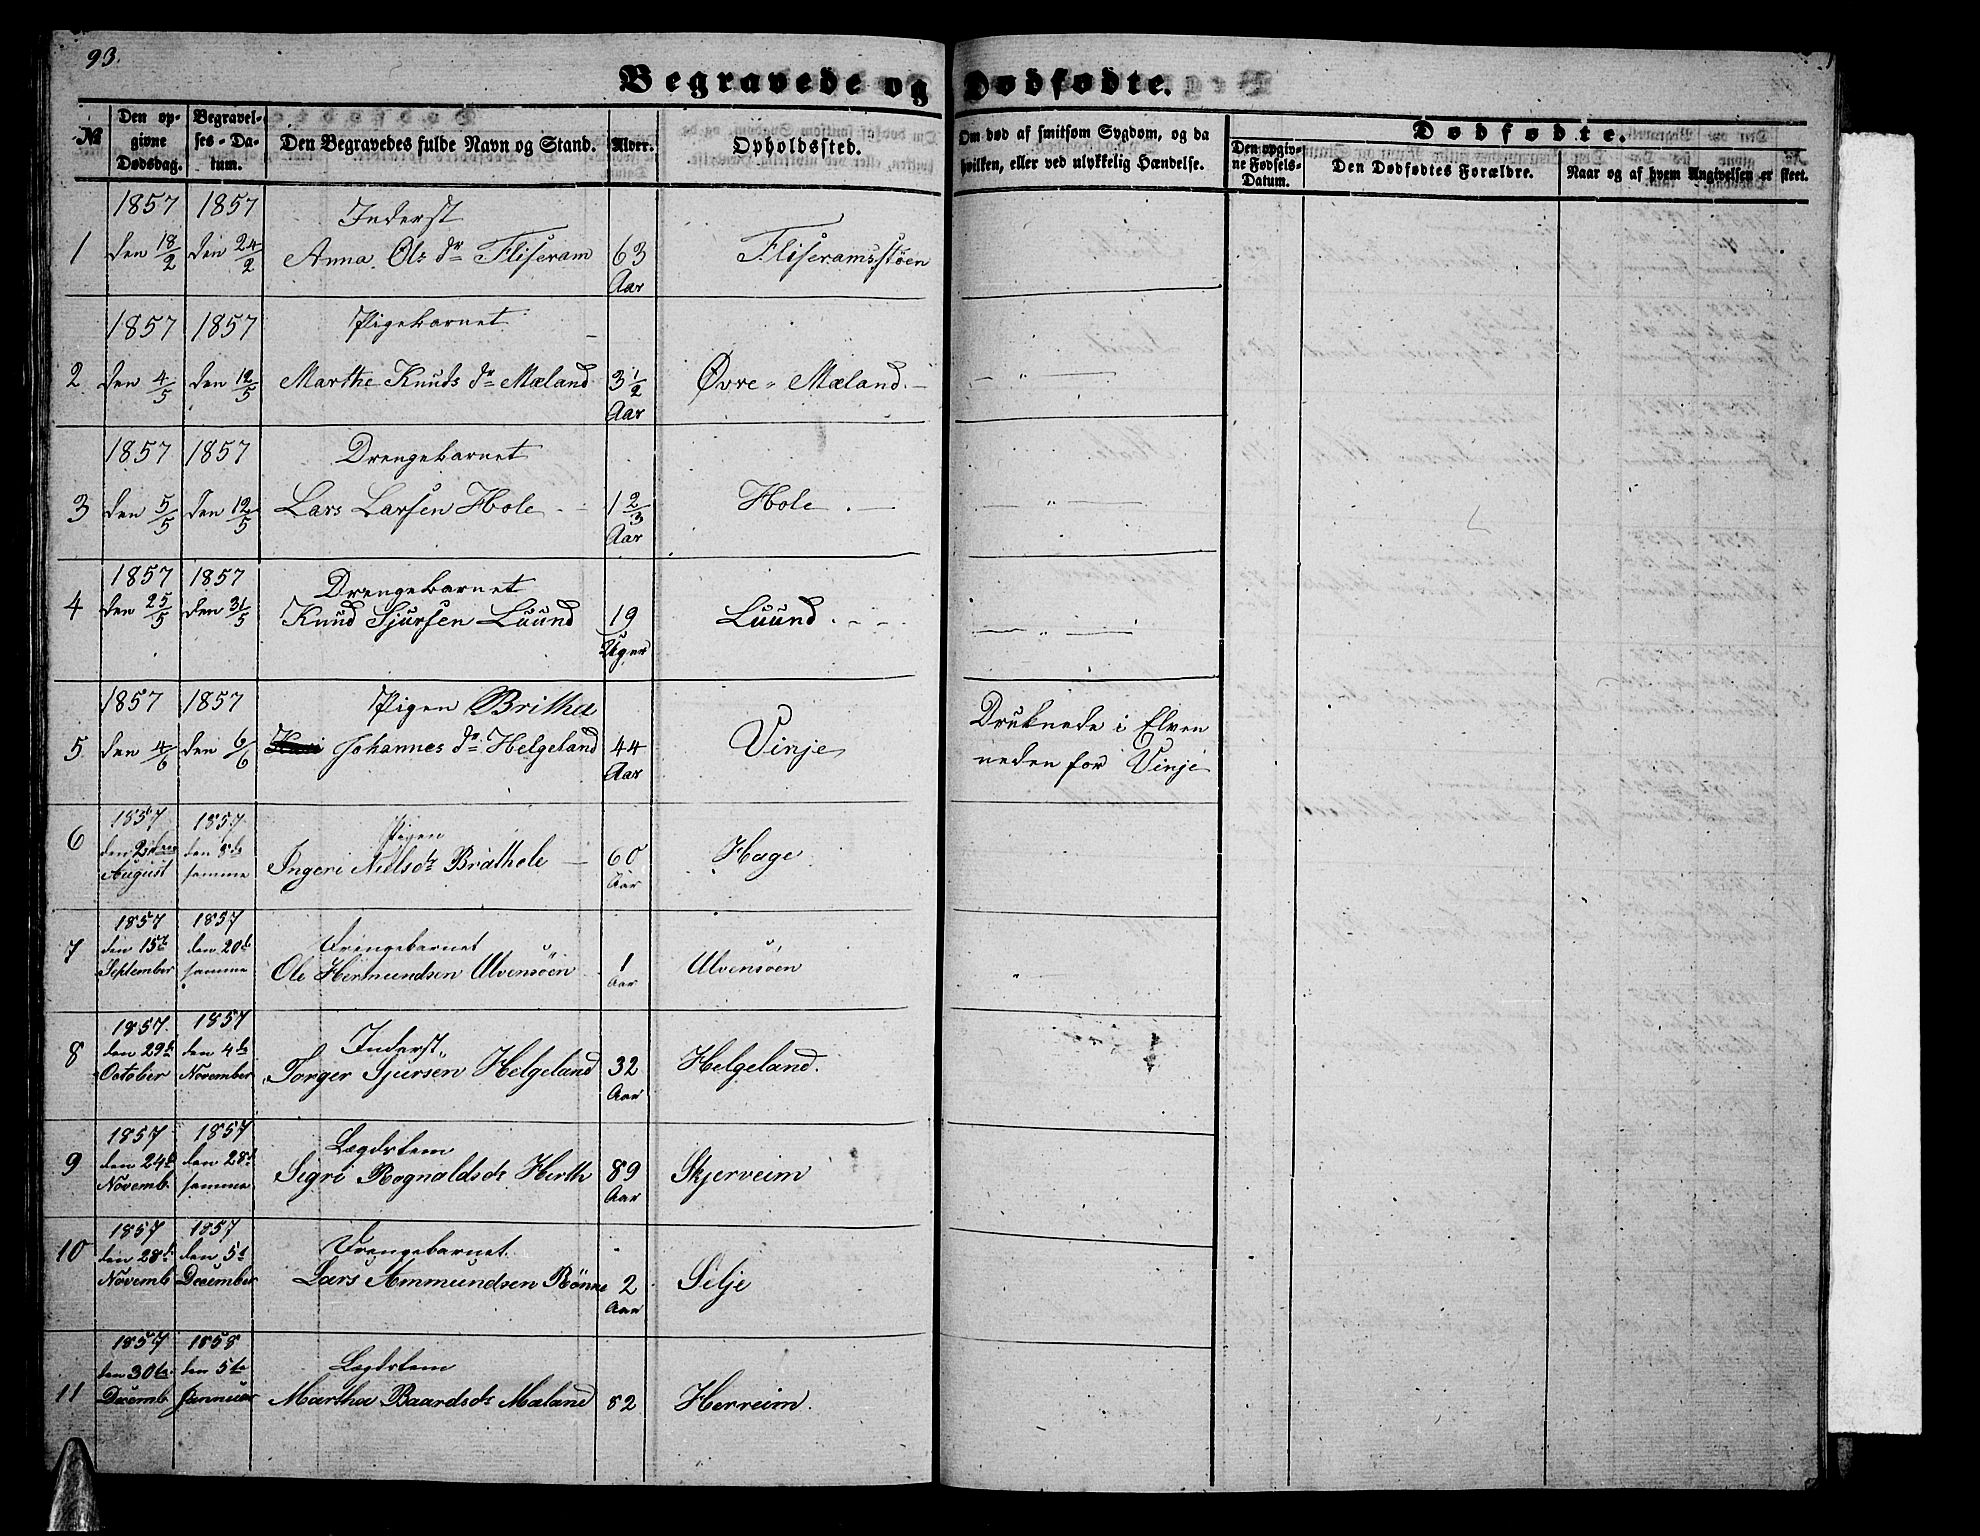 93.
Begravede og Dødfødte.
№
Den op-
givne
Dødsdag.
Begravel-
ses-Da-
tum.
Den Begravedes fulde Navn og Stand.
Alder.
Opholdssted.
Om død af smitsom Sygdom, og da
hvilken, eller ved ulykkelig Hændelse.
Dødfødte.
Den opgiv-
ne Fødsels-
Datum.
Den Dødfødtes Forældre.
Naar og af hvem Angivelsen er skeet.
1857 1857 Inderst
1 den 18/2 den 24/2 Anna Ols dr Fliseram 63 Fliseramsstøen
Aar
1857 1857 Pigebarnet
2 den 4/5 den 12/5 Marthe Knuds dr Mæland 3 1/2 Øvre-Mæland. — " —
Aar
1857 1857 Drengebarnet
3 den 5/5 den 12/5 Lars Larsen Hole 1 2/3 Hole. — " —
Aar
1857 1857 Drengebarnet
4 den 25/5 den 31/5 Knud Sjursen Luund 19 Luund. — " —
Uger
1857 1857 Pigen Britha Druknede i Elven
5 den 4/6 den 6/6 Johannes dr Helgeland 44 Vinje neden for Vinje
Aar
1857 1857 Pigen
6 den 2den den 8de Ingeri Nielsdr Bråthole 60 Hage
August samme Aar
1857 1857 Drengebarnet
7 den 15de den 20de Ole Hermundsen Ulvensöen 1 Ulvensöen
September samme Aar
1857 1857 Inderst
8 den 29de den 4de Torger Sjursen Helgeland 32 Helgeland.
October November Aar
1857 1857 Lægdslem
9 den 24de den 28de Segri Rognaldsdr Herth 89 Skjerveim
Novemb. samme Aar
1857 1857 Drengebarnet
10 den 28de den 5te Lars Ammundsen Rönne 2 Selje
Novemb. December Aar
1857 1858 Lægdslem
11 den 30te den 5te Martha Baardsdr Mæland 82 Herreim.
Decemb. Januar